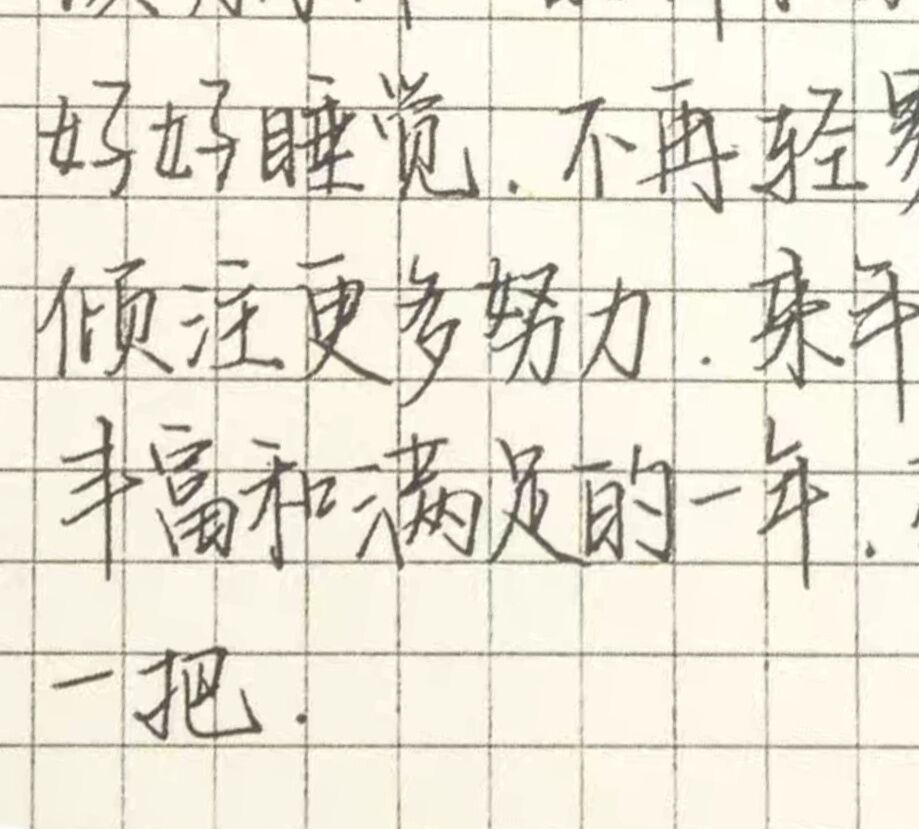 好好睡觉.不再轻易
倾注更多努力.来年
丰富和满足的一年.
一把.